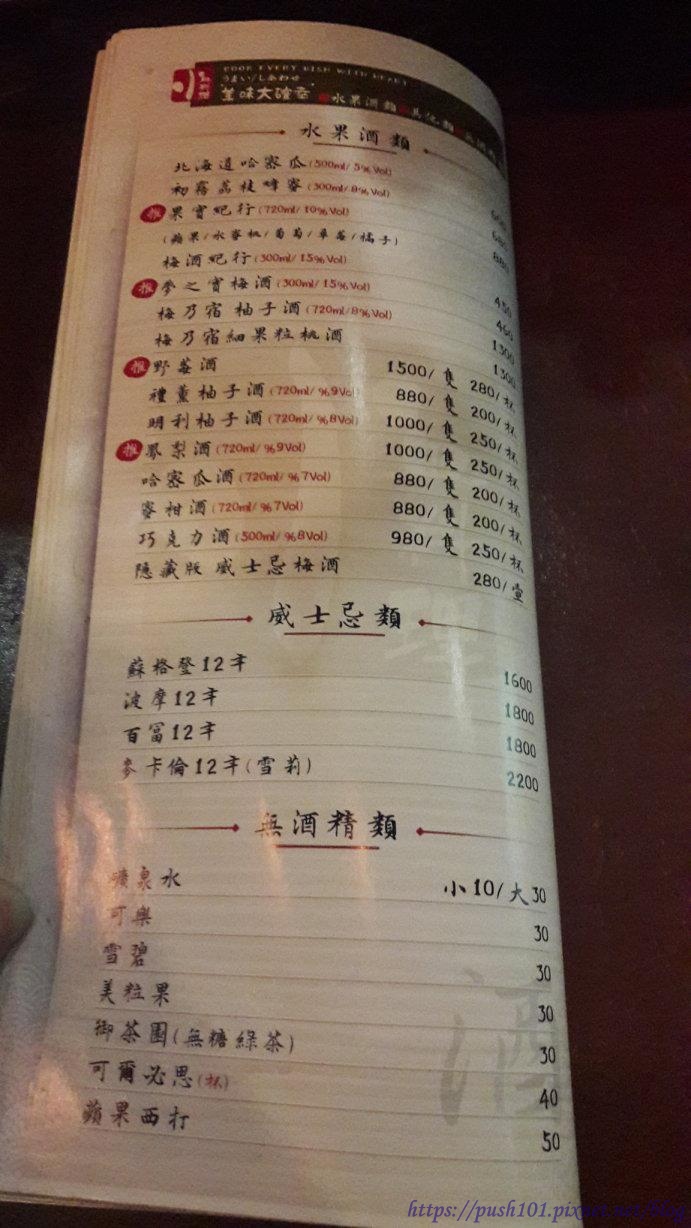 POUR EVERY DISH WITH HEART
うまい/しあわせ
美味大確幸 水果酒類
水果酒類
北海道哈密瓜(500ml/5%Vol)
初霧荔枝蜂蜜(300ml/8%Vol) 680
推 果實紀行(720ml/10%Vol) 880
(蘋果/水蜜桃/葡萄/草莓/橘子)
梅酒紀行(300ml/15%Vol) 450
推 夢之實梅酒(300ml/15%Vol) 460
梅乃宿 柚子酒(720ml/8%Vol) 1300
梅乃宿細果粒桃酒 1300
推 野莓酒 1500/隻 280/杯
禮薰柚子酒(720ml/%9Vol) 880/隻 200/杯
明利柚子酒(720ml/%8Vol) 1000/隻 250/杯
推 鳳梨酒(720ml/%9Vol) 1000/隻 250/杯
哈密瓜酒(720ml/%7Vol) 880/隻 200/杯
蜜柑酒(720ml/%7Vol) 880/隻 200/杯
巧克力酒(500ml/%8Vol) 980/隻 250/杯
隱藏版 威士忌梅酒 280/壺
威士忌類
蘇格登12年 1600
波摩12年 1800
百富12年 1800
麥卡倫12年(雪莉) 2200
無酒精類
礦泉水 小10/大30
可樂 30
雪碧 30
美粒果 30
御茶園(無糖綠茶) 30
可爾必思(杯) 40
蘋果西打 50
酒
https://push101.pixnet.net/blog